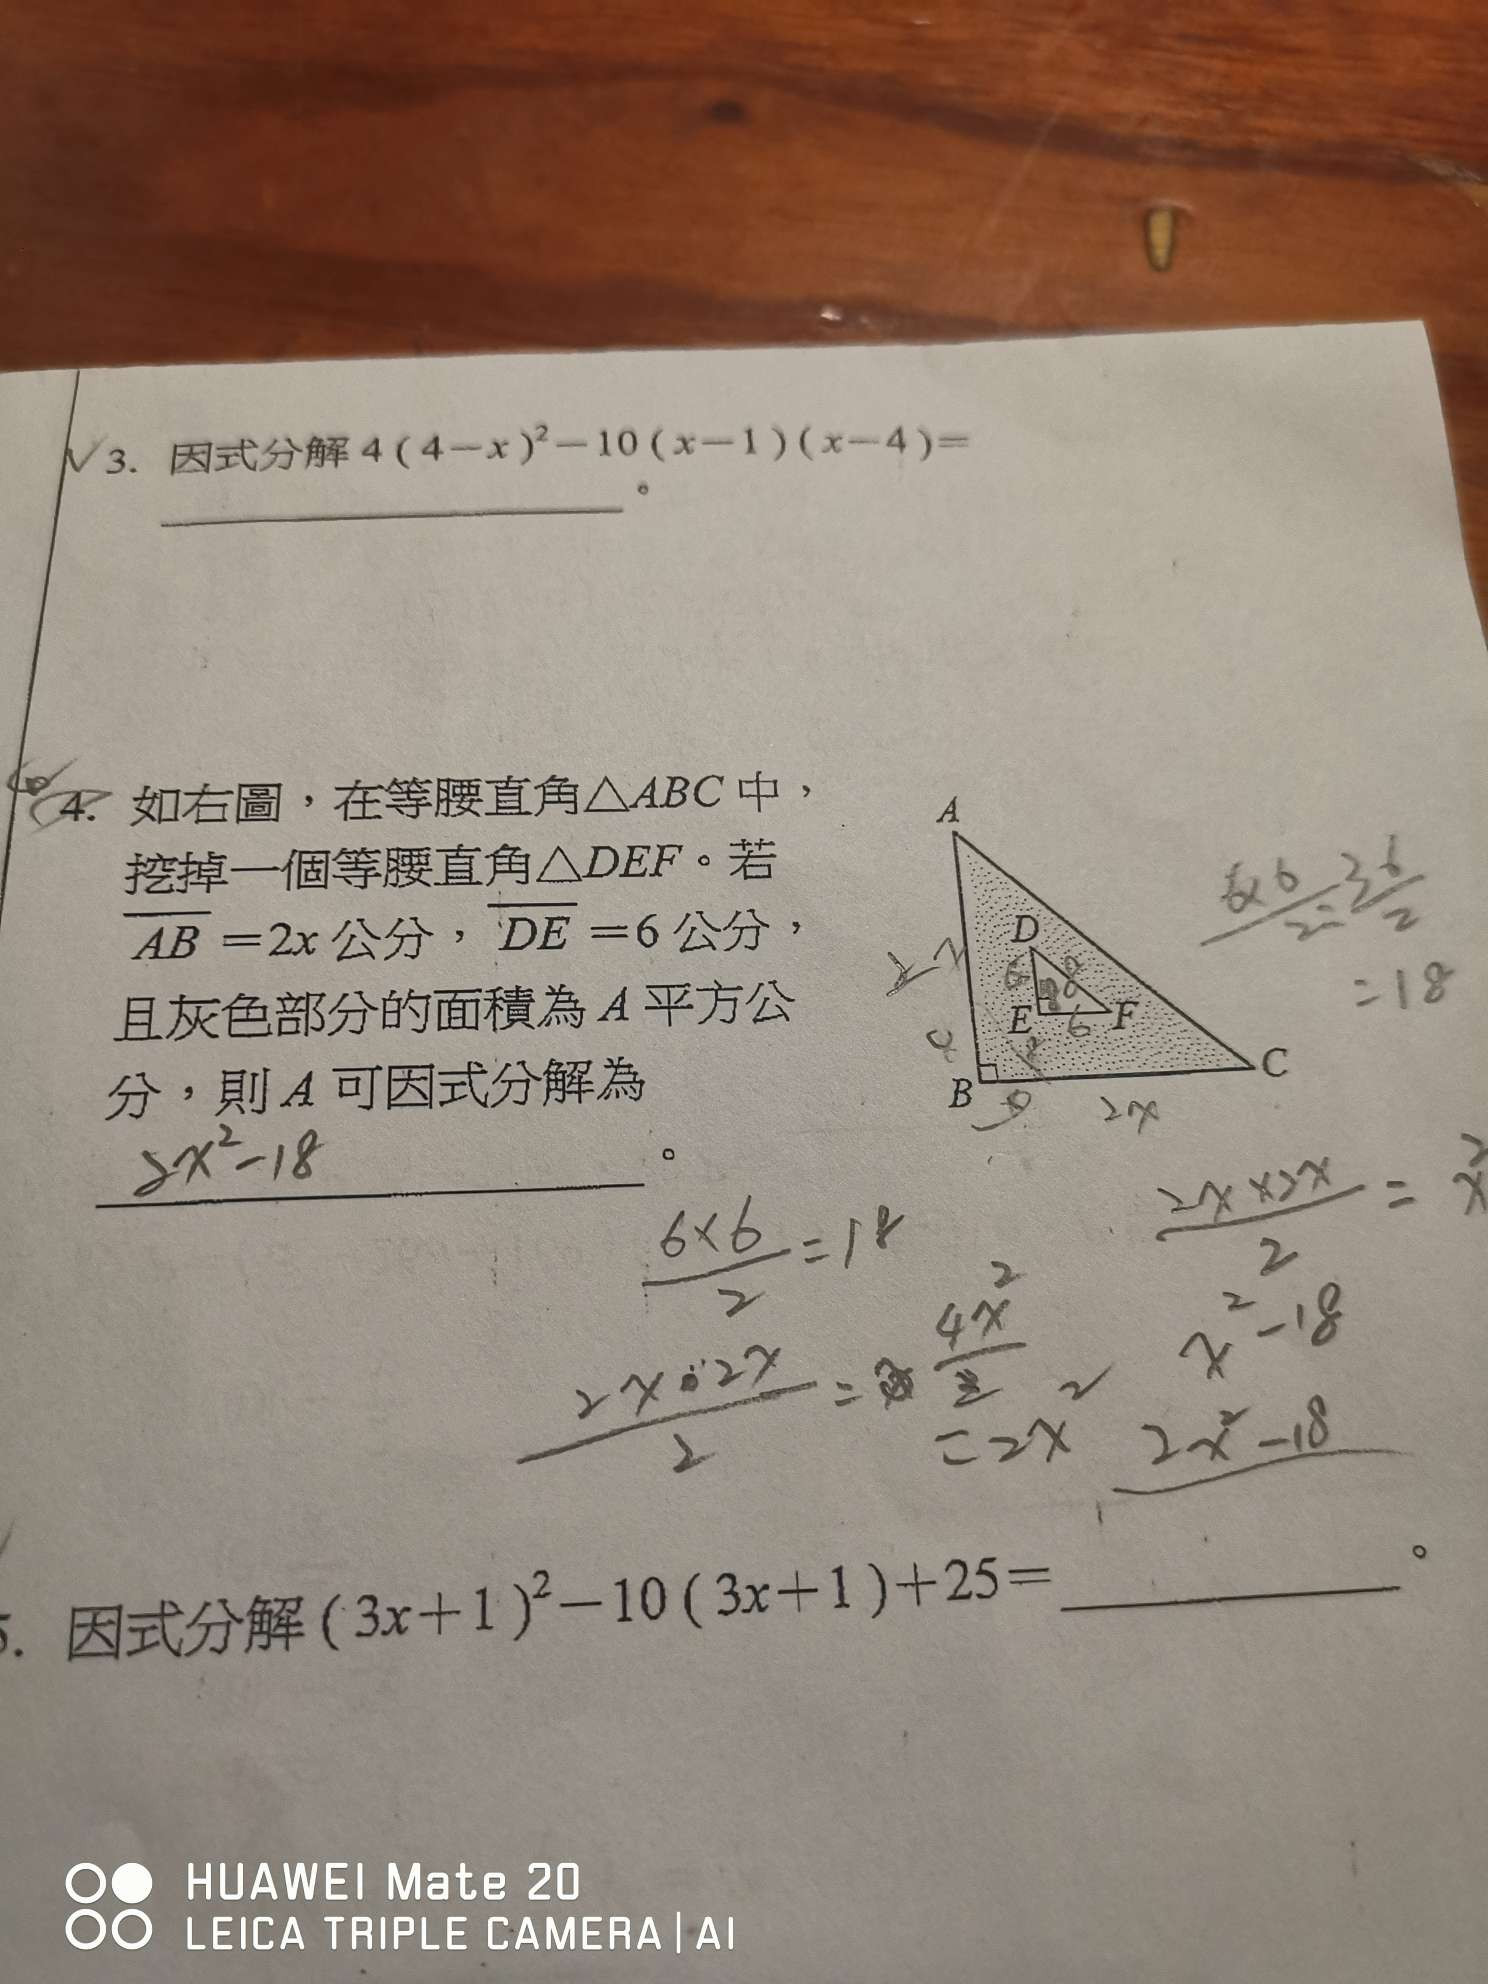 3. 因式分解 4(4－x)²－10(x－1)(x－4)=
________。
4. 如右圖，在等腰直角△ABC中，
挖掉一個等腰直角△DEF。若
AB=2x公分，DE=6公分，
且灰色部分的面積為A平方公
分，則A可因式分解為
2x²-18。
A
D
E
F
B
C
6
6
2x
6×6/2=36/2
=18
6×6/2=18
2x×2x/2=x²
x²-18
2x·2x/2=4x²/2
=2x²
2x²-18
5. 因式分解(3x+1)²－10(3x+1)+25=________。
HUAWEI Mate 20
LEICA TRIPLE CAMERA | AI